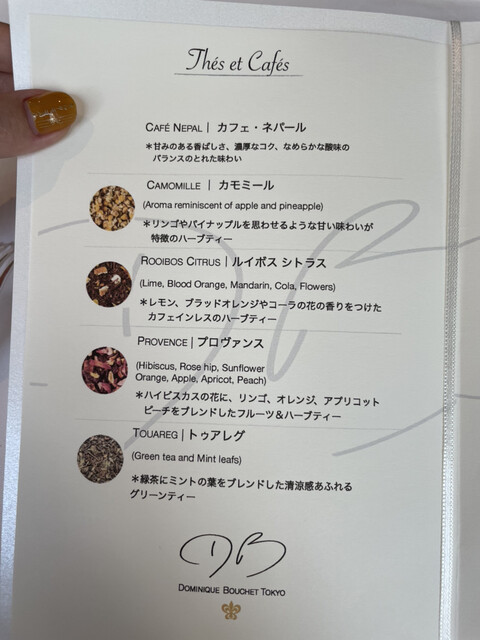 Thés et Cafés
CAFÉ NEPAL | カフェ・ネパール
＊甘みのある香ばしさ、濃厚なコク、なめらかな酸味の
バランスのとれた味わい
CAMOMILLE | カモミール
(Aroma reminiscent of apple and pineapple)
＊リンゴやパイナップルを思わせるような甘い味わいが
特徴のハーブティー
ROOIBOS CITRUS | ルイボス シトラス
(Lime, Blood Orange, Mandarin, Cola, Flowers)
＊レモン、ブラッドオレンジやコーラの花の香りをつけた
カフェインレスのハーブティー
PROVENCE | プロヴァンス
(Hibiscus, Rose hip, Sunflower
Orange, Apple, Apricot, Peach)
＊ハイビスカスの花に、リンゴ、オレンジ、アプリコット
ピーチをブレンドしたフルーツ＆ハーブティー
TOUAREG | トゥアレグ
(Green tea and Mint leafs)
＊緑茶にミントの葉をブレンドした清涼感あふれる
グリーンティー
DB
DOMINIQUE BOUCHET TOKYO